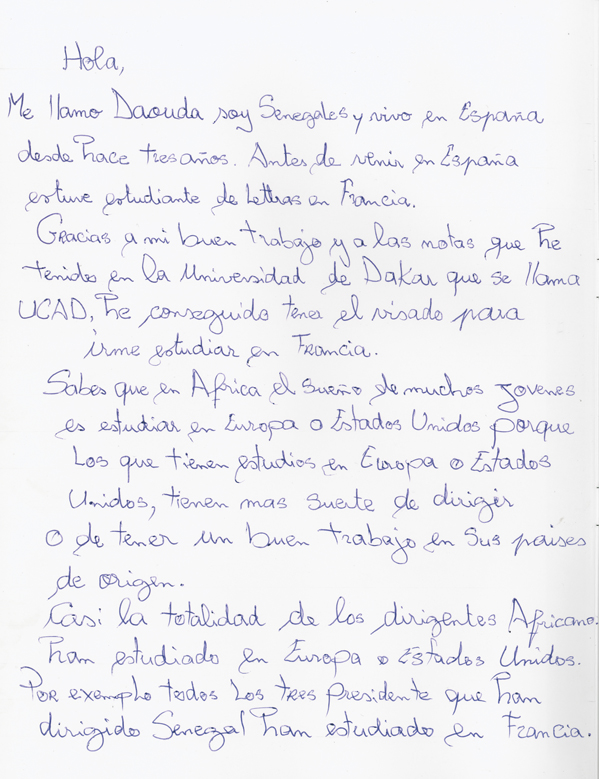 Hola,
Me llamo Daouda soy Senegales y vivo en España
desde hace tres años. Antes de venir en España
estuve estudiante de Lettras en Francia.
Gracias a mi buen trabajo y a las notas que he
tenido en la Universidad de Dakar que se llama
UCAD, he conseguido tener el visado para
irme estudiar en Francia.
Sabes que en Africa el sueño de muchos jovenes
es estudiar en Europa o Estados Unidos porque
Los que tienen estudios en Europa o Estados
Unidos, tienen mas suerte de dirigir
o de tener un buen trabajo en sus paises
de origen.
Casi la totalidad de los dirigentes Africano.
han estudiado en Europa o Estados Unidos.
Por exemplo todos Los tres presidente que han
dirigido Senegal han estudiado en Francia.